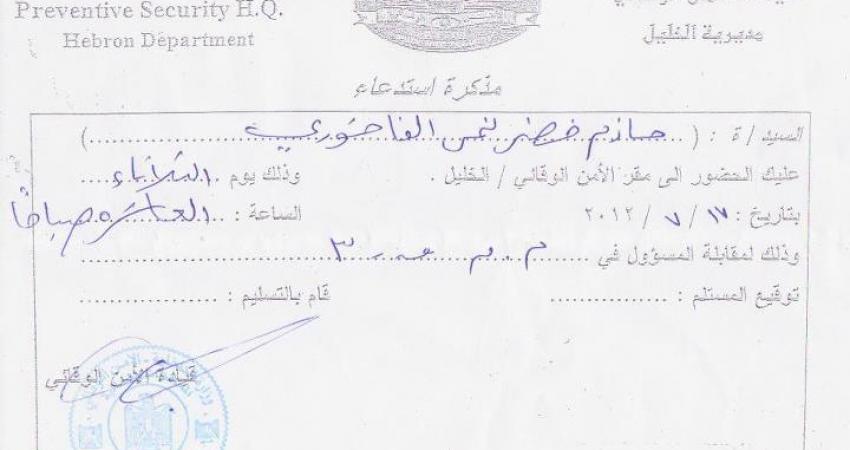 Preventive Security H.Q.
Hebron Department
مديرية الخليل
مذكرة استدعاء
السيد / ة : ( حازم خضر نمر الفاخوري )
عليك الحضور الى مقر الأمن الوقائي / الخليل . وذلك يوم الثلاثاء
بتاريخ : ١٧ / ٧ / ٢٠١٢ الساعة : العاشره صباحاً
وذلك لمقابلة المسؤول في
توقيع المستلم : قام بالتسليم :
قيادة الأمن الوقائي